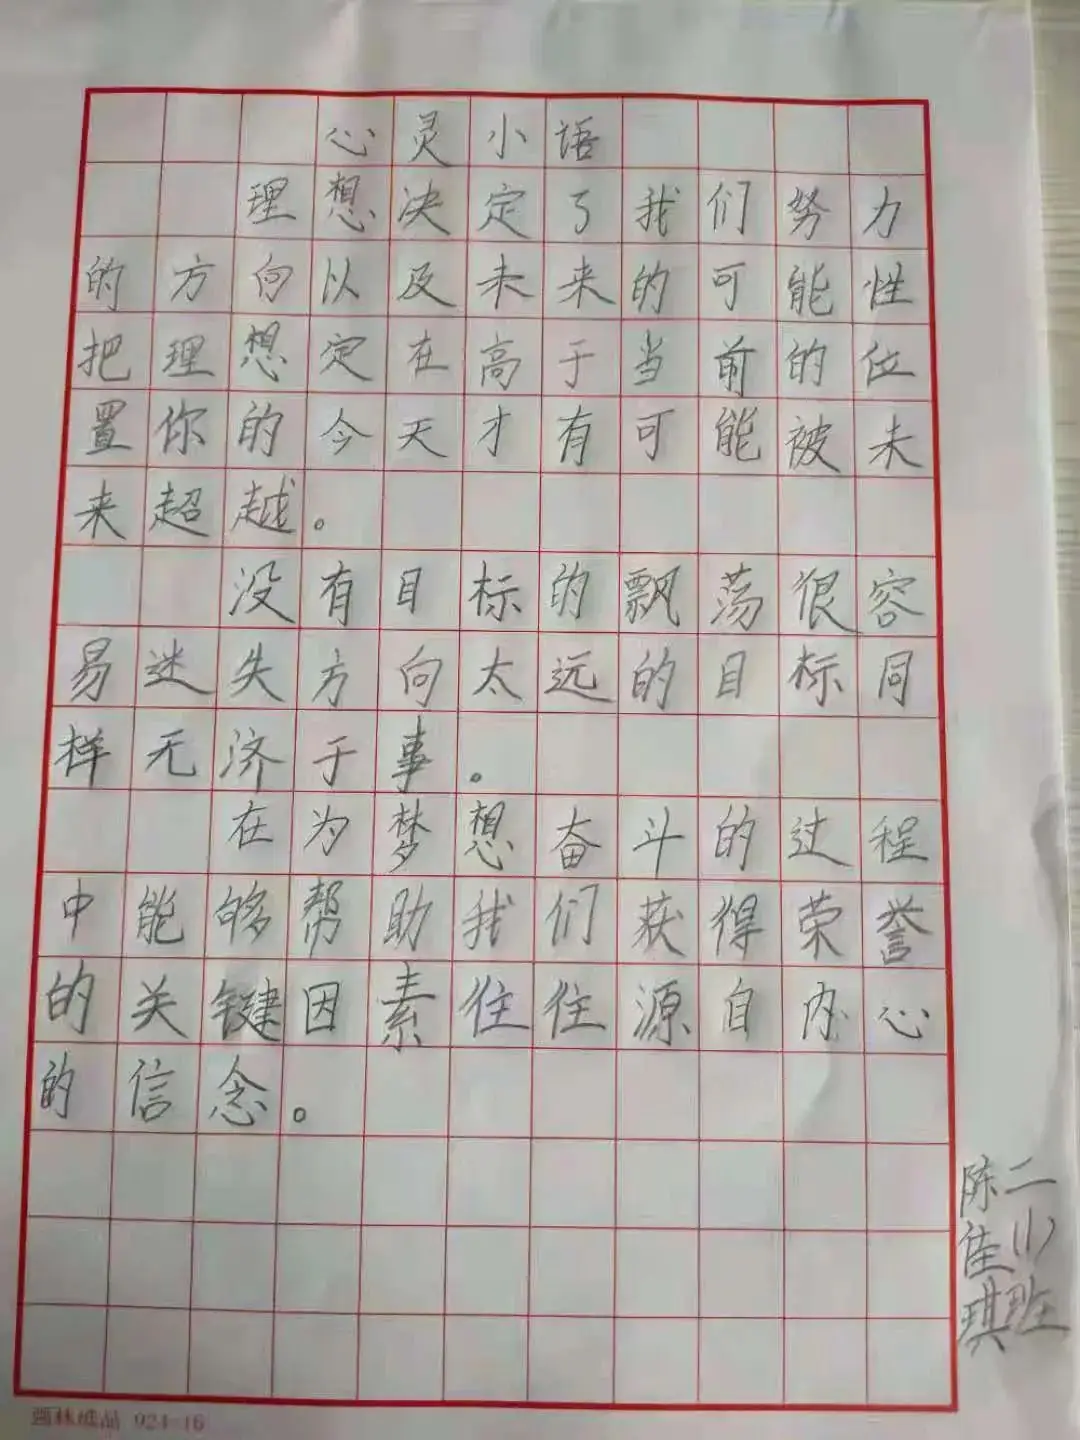 心灵小语
理想决定了我们努力
的方向以及未来的可能性
把理想定在高于当前的位
置你的今天才有可能被未
来超越。
没有目标的飘荡很容
易迷失方向太远的目标同
样无济于事。
在为梦想奋斗的过程
中能够帮助我们获得荣誉
的关键因素往往源自内心
的信念。
二(1)班
陈佳琪
924-16